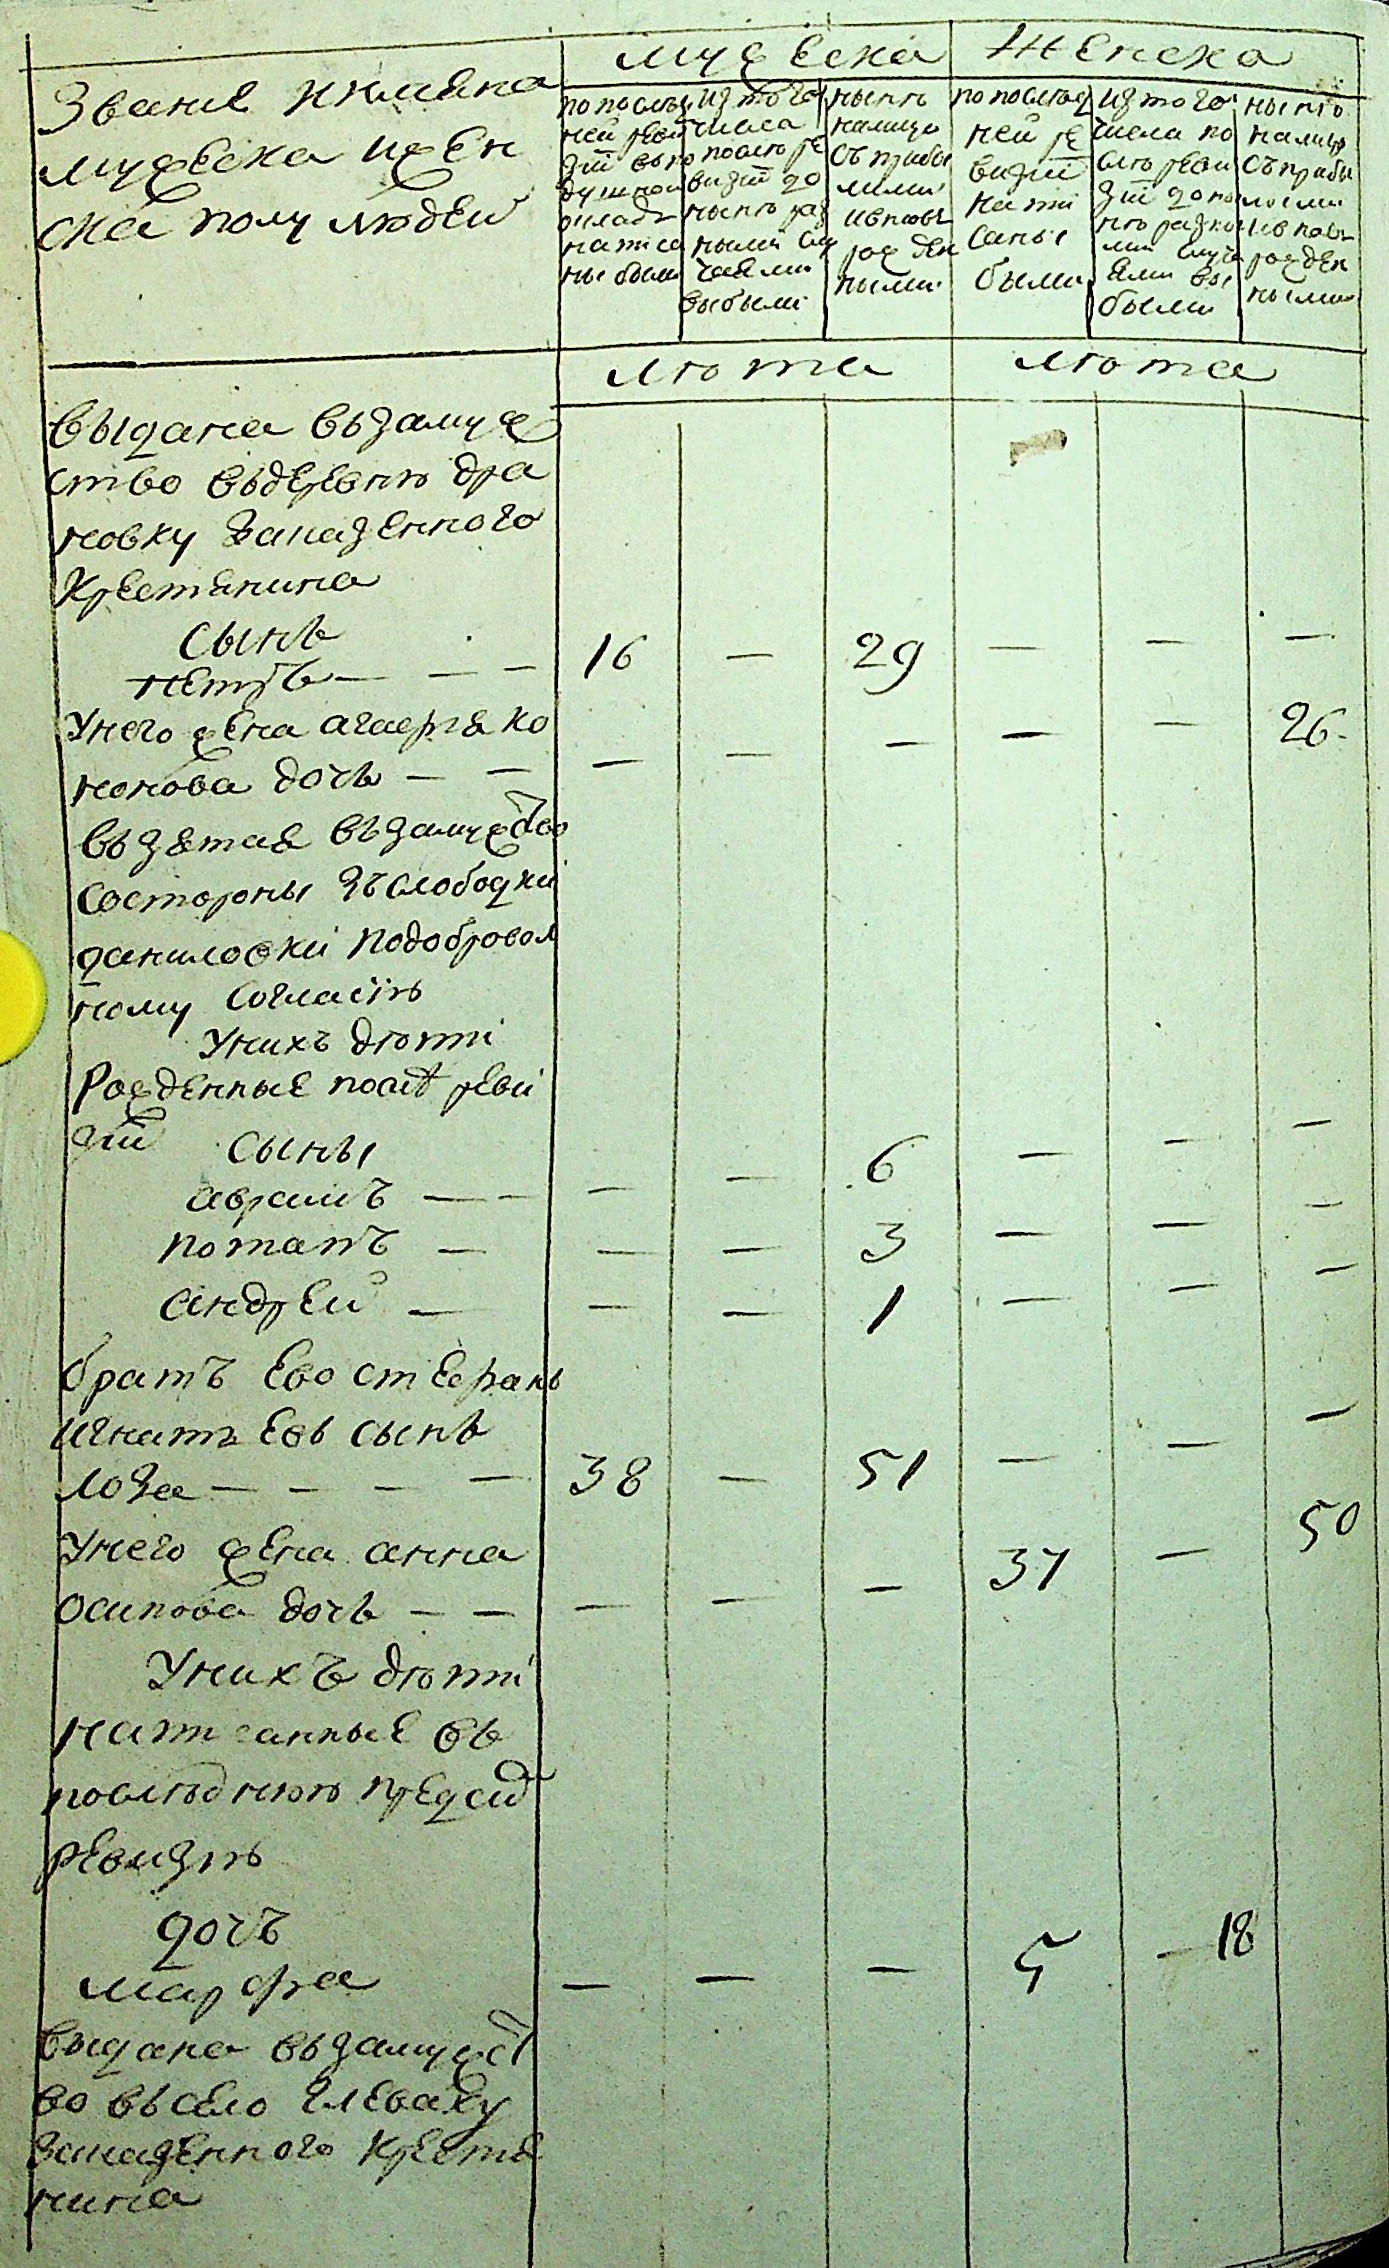 Звание и имяна
мужеска и жен
ска полу людей
мужеска
женска
по послед
ней реви
зии в по
душной
оклад
написа
ны были
из того
числа
после ре
визии до
ныне раз
ными слу
чаями
выбыли
ныне
налицо
с прибы
лыми
и вновь
рожден
ными
по послед
ней ре
визии
напи
саны
были
из того
числа по
сле реви
зии до ны
не разны
ми случа
ями вы
были
ныне
налицо
с прибы
лыми
и вновь
рожден
ными
лета
лета
выдана взамуже
ство вдеревню дра
новку казазенного
крестянина
сынъ
петръ — — — 16 — 29 — — —
унего жена агафия ко
нонова дочь — — — — — — — 26
вьзятая взамужство
состороны зъ слободки
даниловки подобровол
ному согласию
унихъ дети
рожденные после реви
зии сыны
аврамъ — — — — 6 — — —
потапъ — — — 3 — — —
андрей — — — 1 — — —
братъ ево стефанъ
игнатьевъ сынъ
лоза — — — — 38 — 51 — — —
унего жена анна
осипова дочь — — — — — 37 — 50
унихъ дети
написанные въ
последнюю предъсид
ревизию
дочъ
марфа — — — 5 — 18
выдана взамужст
во всело глеваху
казазенного крестя
нина